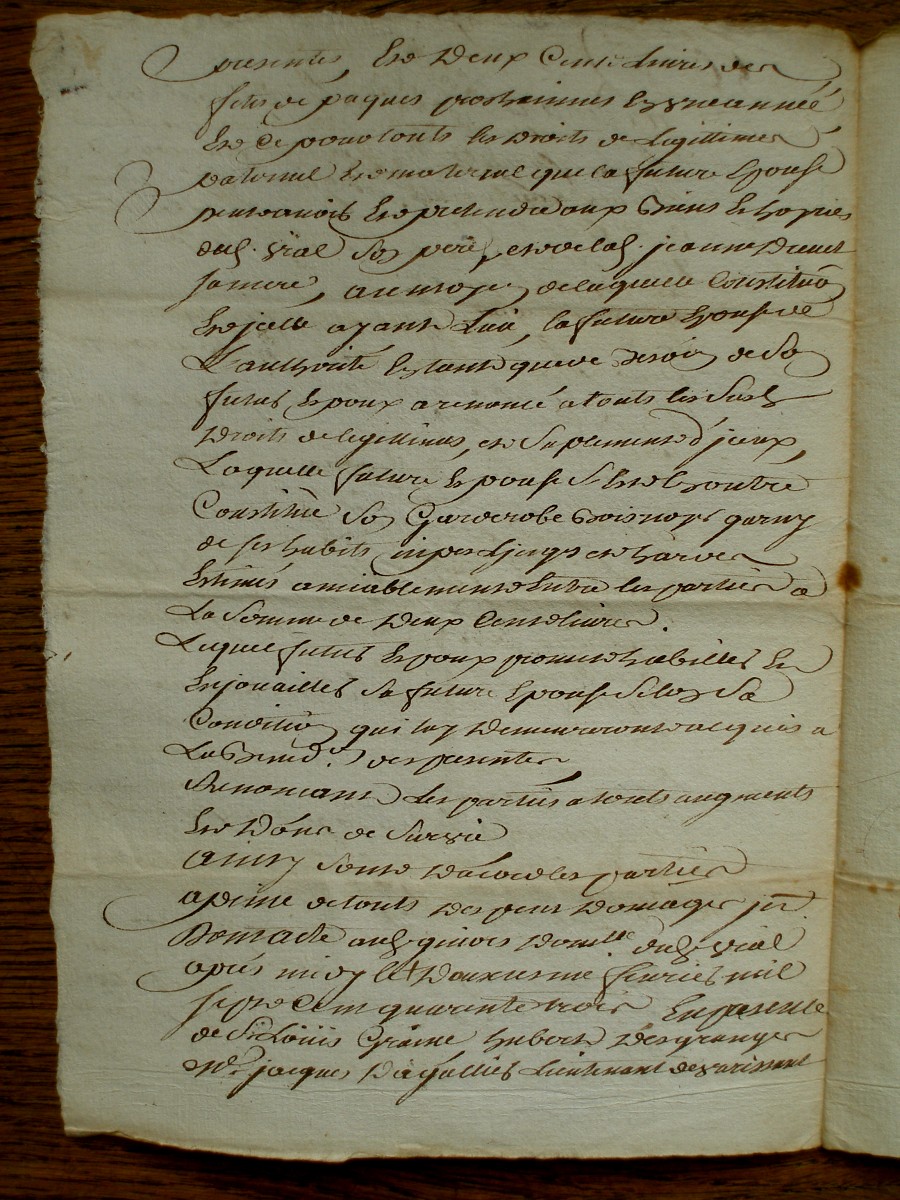 presentes, et deux Cent Livres des
fetes de paques prochaines en une année
et ce pour touts les droits de Legittimes
paternel et maternel que la future Epouse
peut avoir et pretendre aux Biens et hoyries
dud. Vial son pere, et de lad. jeanne
sa mere, au moyen de laquelle Constitu͠on
et jcelle ayant Lüe, la future Epouse de
L'authorité Entant que de Besoin de son
futur Epoux a renoncé a touts les Susd.
Droits de legittimes, et Suplement d'jceux,
Laquelle future Epouse S'est En outre
Constitué Son Garderobe Bois noyé garny
de ses habits, linges et hardes
Estimés amiablement Entre les parties a
La Somme de deux Cent livres.
Lequel futur Epoux promet habiller et
Enjouailler Sa future Epouse Selon Sa
Condition qui luy demeureront acquis a
La Bened.on des presentes
Renonçant Les parties a touts augments
et dons de Survie
ainsy Sont d'acord les parties
a peine de touts depens Domages jnt.
Dont acte aud. domille. dud. Vial
aprés midy le douxiesme feuvrier mil
sept cent quarente trois En presence
de Sr. Loüis Hubert desgranges
Mr. jacques Lieutenant de